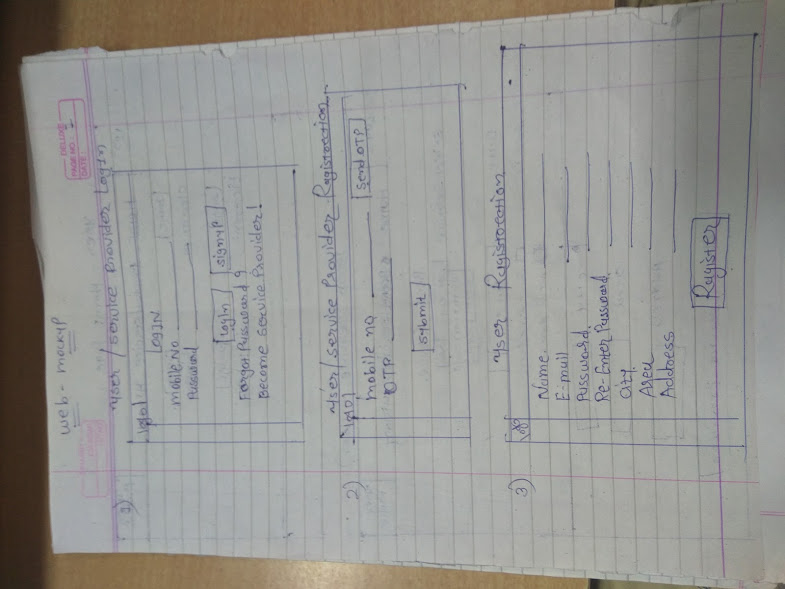 DELUXE
PAGE NO.: 2
DATE:
web-mockup
1) User/service provider Login
logo
LOGIN
mobile No
Password
Login signup
Forgot Password?
Become service Provider!
2) User/service Provider Registration
logo
mobile no send OTP
OTP
submit
3) User Registration
Name
E-mail
Password
Re-Enter Password
city
Area
Address
Register